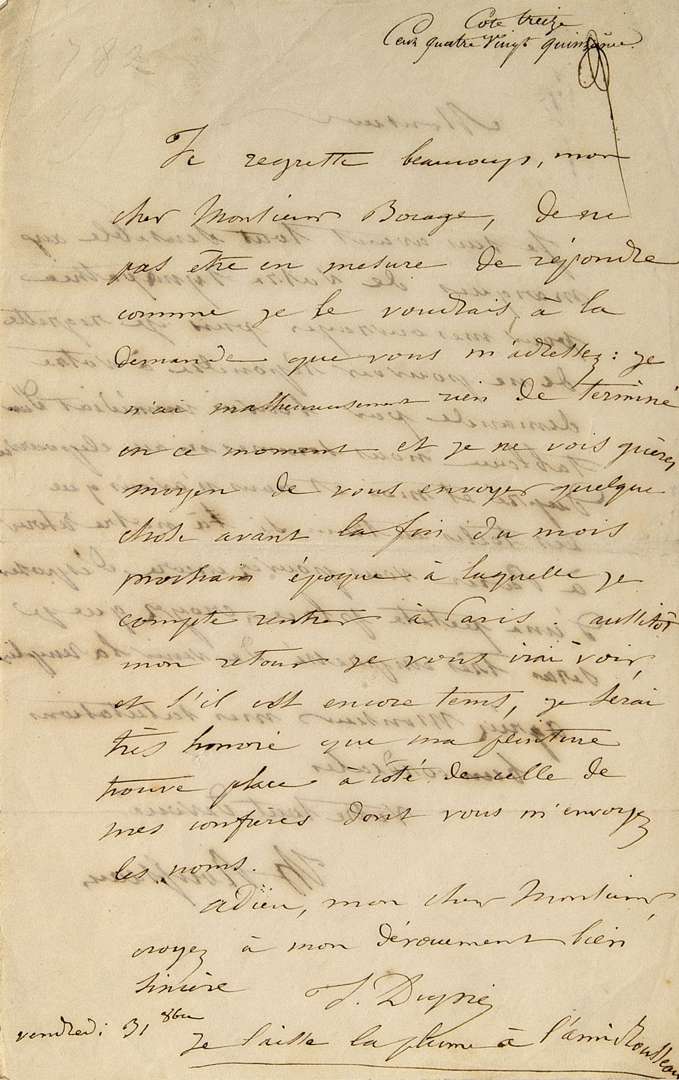 Cote treize
Cent quatre vingt quinzième.
Je regrette beaucoup, mon
cher Monsieur Bocage, de ne
pas être en mesure de répondre
comme je le voudrais, à la
demande que vous m'adressez : je
n'ai malheureusement rien de terminé
en ce moment et je ne vois guères
moyen de vous envoyer quelque
chose avant la fin du mois
prochain époque à laquelle je
compte rentrer à Paris. aussitôt
mon retour je vous irai voir,
et s'il est encore tems, je serai
très honoré que ma peinture
trouve place à coté de celle de
mes confreres dont vous m'envoyez
les noms.
adieu, mon cher Monsieur,
croyez à mon dévouement bien
sincère
J. Dupré
vendredi 31 8bre
Je laisse la plume à l'ami Rousseau